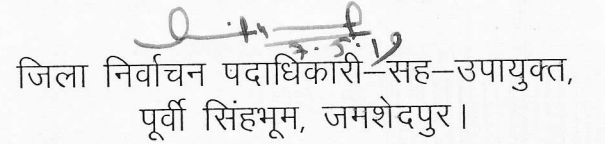 7.5.19
जिला निर्वाचन पदाधिकारी–सह–उपायुक्त,
पूर्वी सिंहभूम, जमशेदपुर।